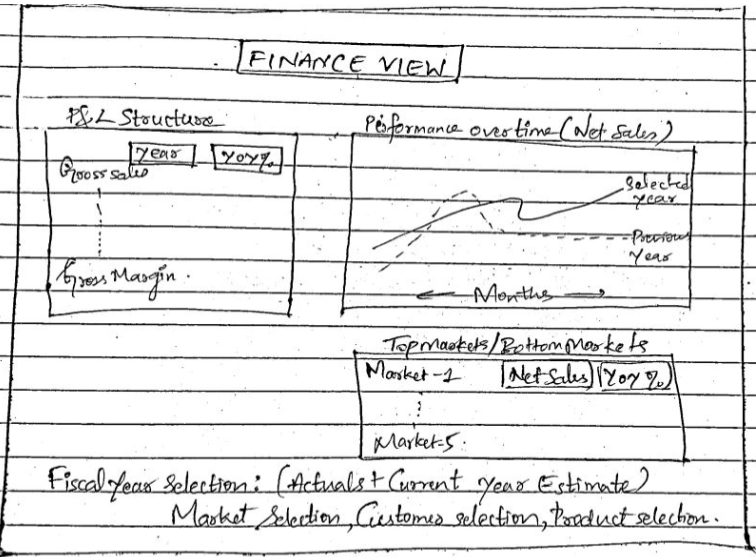 FINANCE VIEW
P&L Structure
Year YOY%
Gross sales
Gross Margin.
Performance overtime (Net Sales)
Selected
year
Previous
Year
Months
Top markets/Bottom Markets
Market-1 Net Sales YOY %
Market-5.
Fiscal year Selection: (Actuals + Current year Estimate)
Market Selection, Customer selection, Product selection.